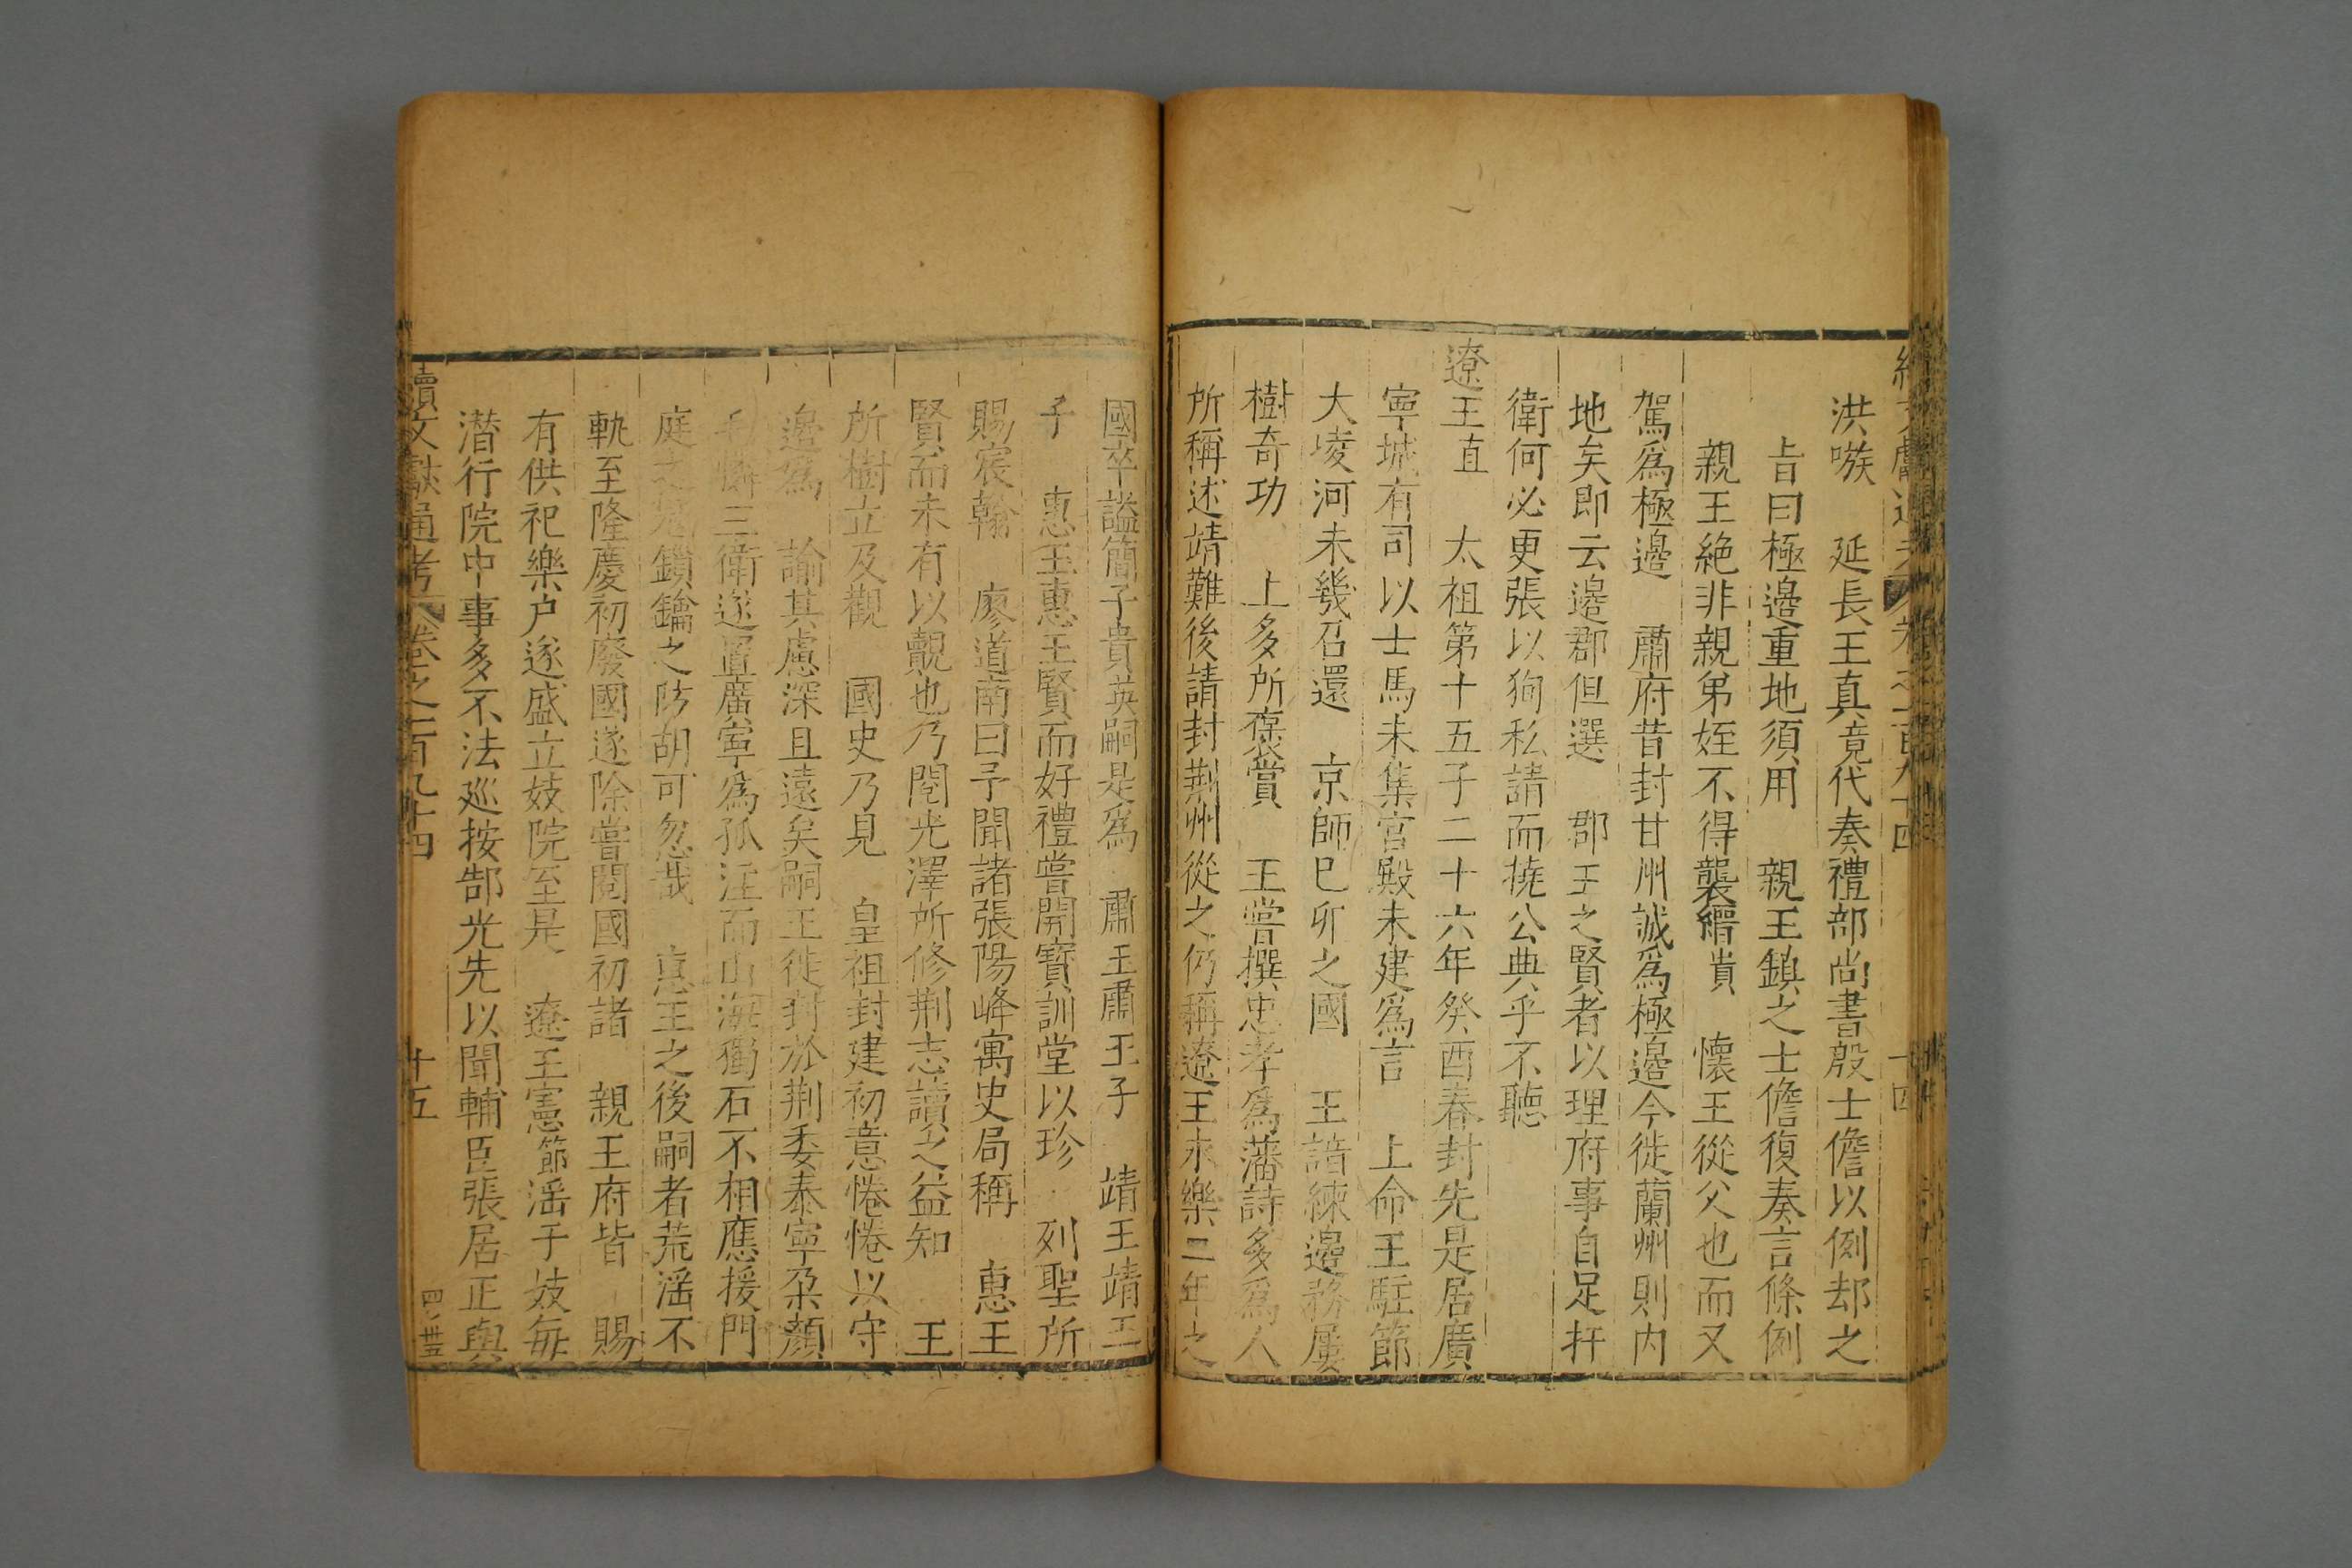 洪嗾　延長王真竟代奏禮部尚書殷士儋以例却之
旨曰極邊重地須用　親王鎮之士儋復奏言條例
親王絶非親弟姪不得襲縉貴　懷王從父也而又
駕爲極邊　肅府昔封甘州誠爲極邊今徙蘭州則内
地矣即云邊郡但選　郡王之賢者以理府事自足扞
衛何必更張以狥私請而撓公典乎不聽
遼王直　太祖第十五子二十六年癸酉春封先是居廣
寧城有司以士馬未集宮殿未建爲言　上命王駐節
大凌河未幾召還　京師巳卯之國　王諳練邊務屢
樹奇功　上多所褒賞　王嘗撰忠孝爲藩詩多爲人
所稱述靖難後請封荆州從之仍稱遼王永樂二年之
國卒謚簡子貴英嗣是爲　肅王肅王子　靖王靖王
子　惠王惠王賢而好禮嘗開寶訓堂以珍　列聖所
賜宸翰　廖道南曰予聞諸張陽峰寓史局稱　惠王
賢而未有以覩也乃閱光澤所修荆志讀之益知　王
所樹立及觀　國史乃見　皇祖封建初意惓惓以守
邊爲　諭其慮深且遠矣嗣王徙封於荆委泰寧朶顔
三衛遂置廣寧爲孤注而山海獨石不相應援門
庭之鎖鑰之防胡可忽哉　惠王之後嗣者荒滛不
軌至隆慶初廢國遂除嘗閱國初諸　親王府皆　賜
有供祀樂户遂盛立妓院至是　遼王憲節滛于妓每
潛行院中事多不法巡按郜光先以聞輔臣張居正與
續文獻通考　卷之一百九十四　十五
四ノ卅五